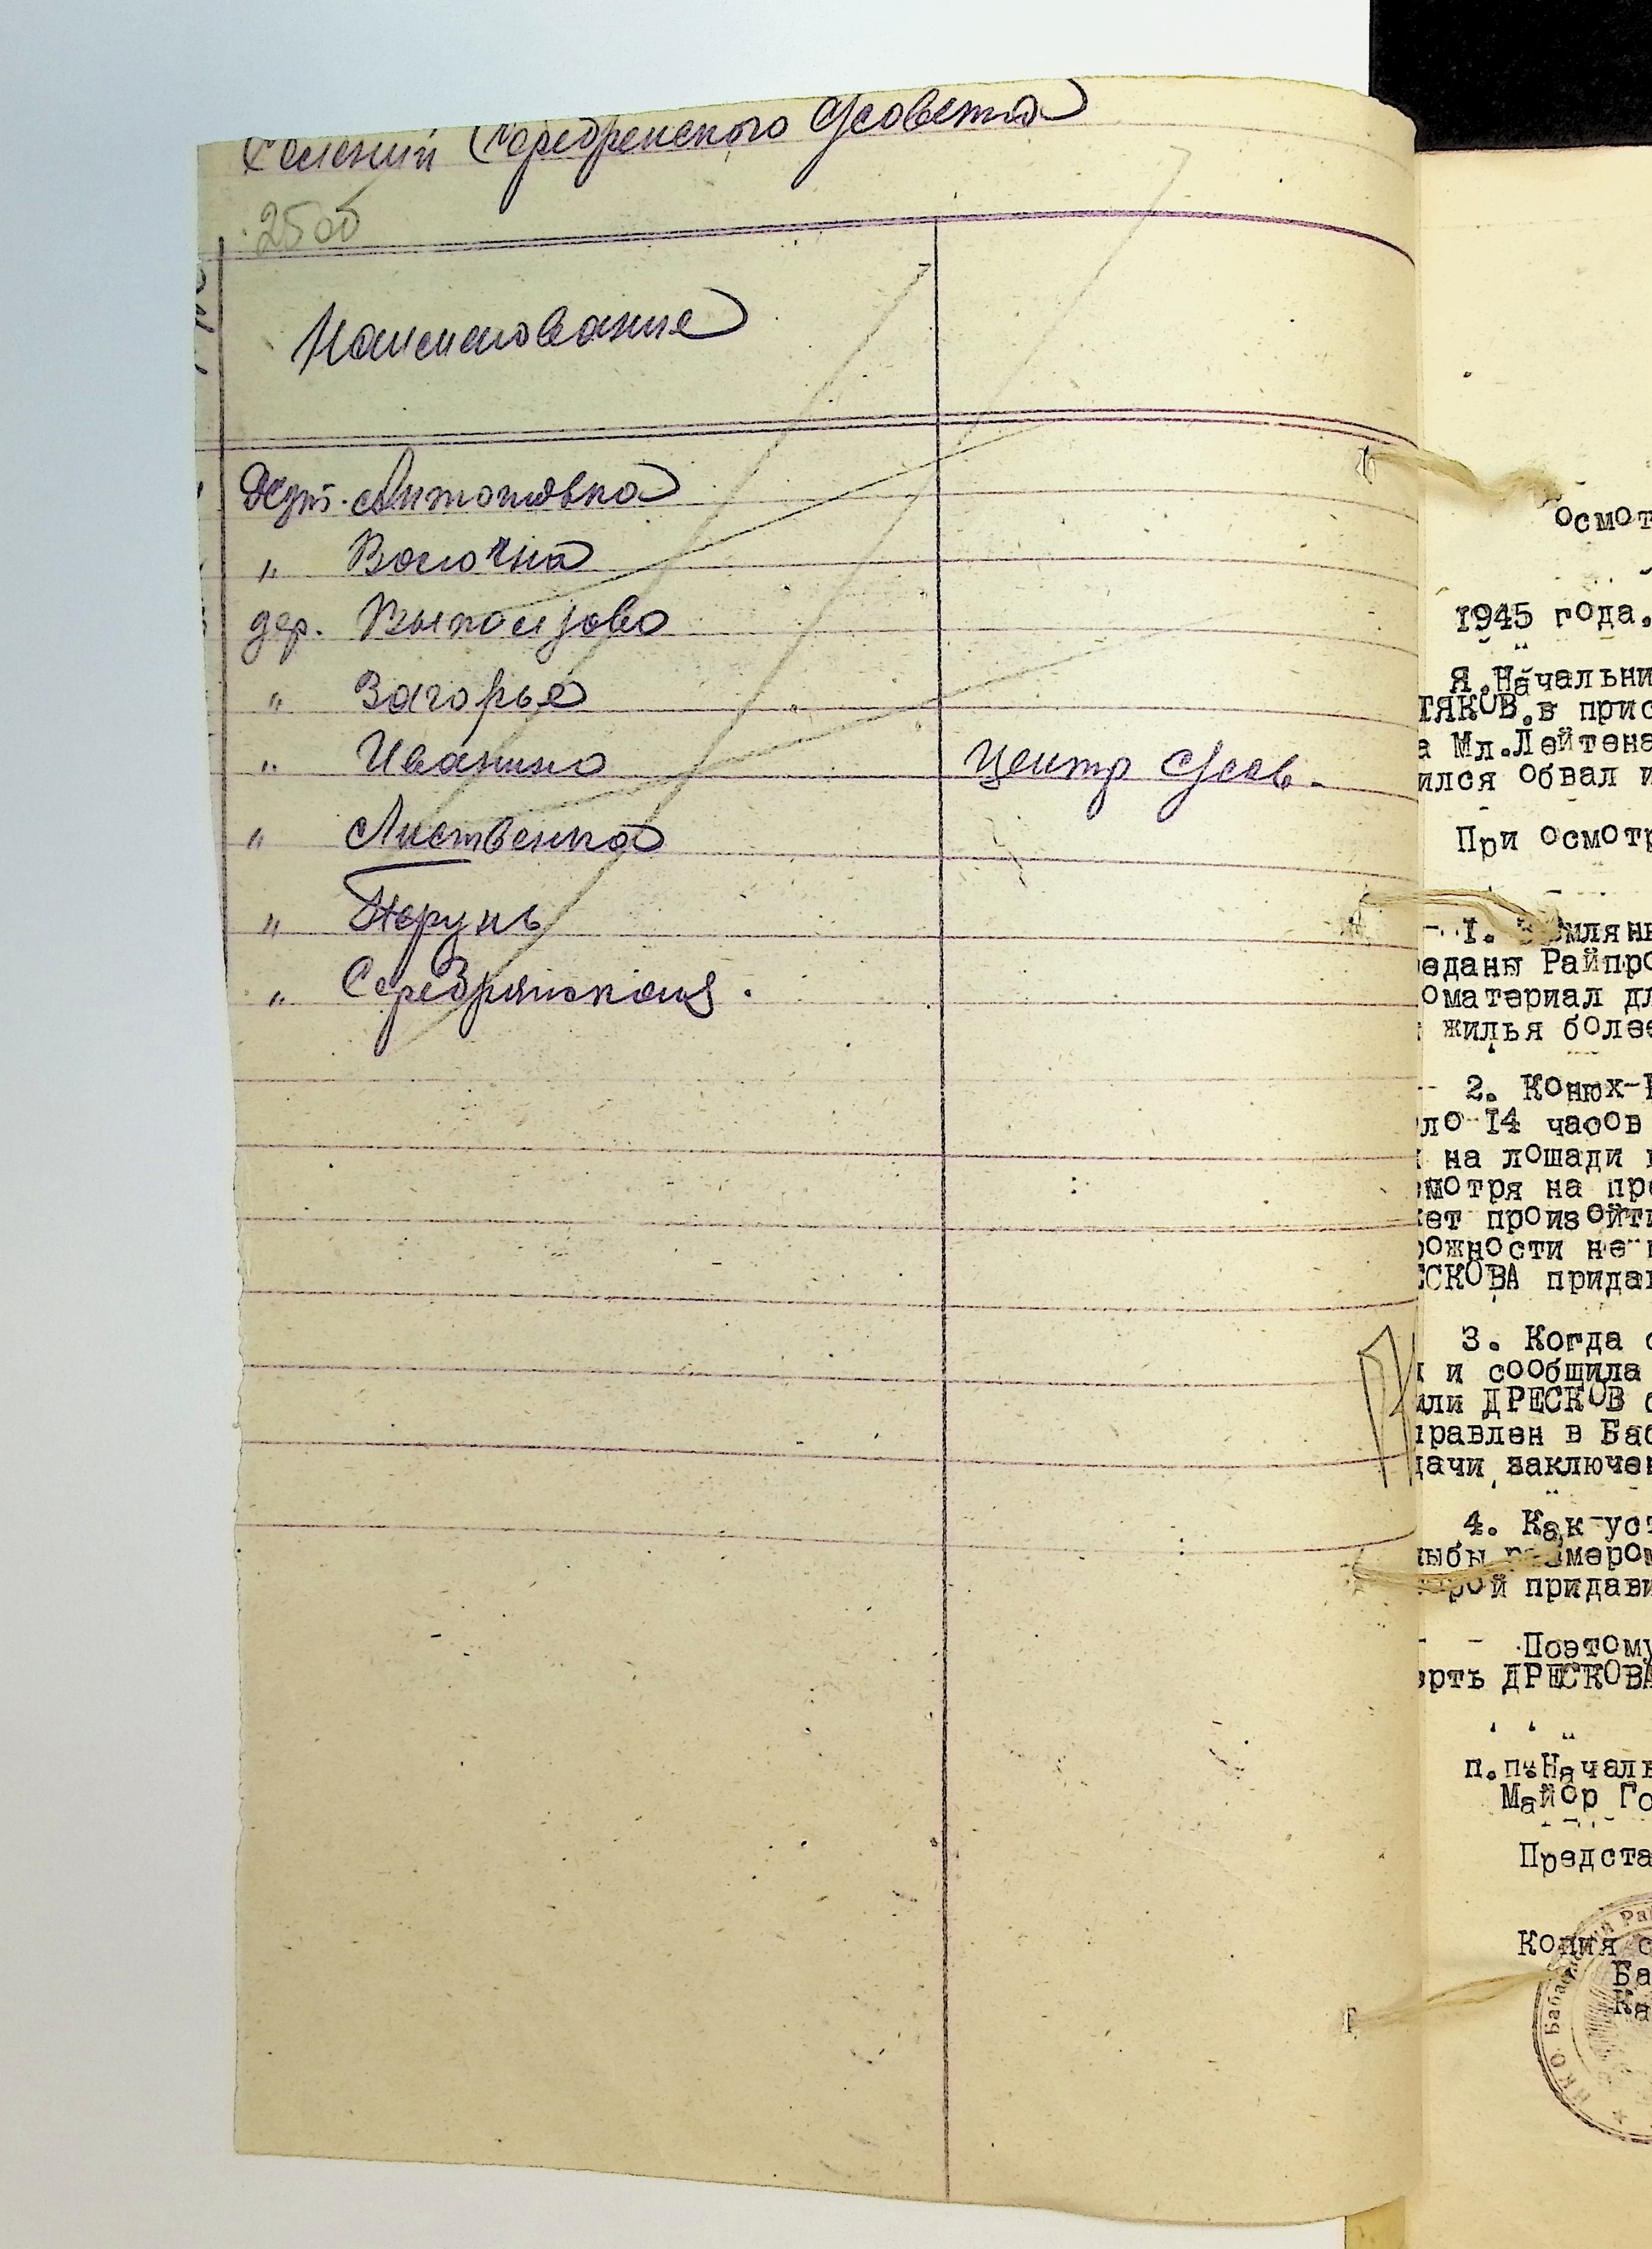 Селений Серебренского с/совета
25об
Наименование
Хут. Антоновка
" Волочна
дер. Выползово
" Загорье
" Иванино Центр с/сов.
" Лиственка
" Перунь
" Серебрянская.
осмот
1945 года.
Я.Начальни
ТЯКОВ.в прис
а Мл.Лейтена
ился обвал и
При осмотр
1. Землянн
еданы Райпро
оматериал дл
жилья более
2. Конюх-
ло 14 часов
на лошади
мотря на про
ет произойти
ожности не
ЕСКОВА придав
3. Когда
и сообщила
или ДРЕСКОВ
правлен в Баб
дачи заключен
4. Как уст
лыбы размером
рой придави
Поэтому
ерть ДРЕСКОВА
п.п.Началь
Майор Го
Предста
Копия с
Ба
Ка